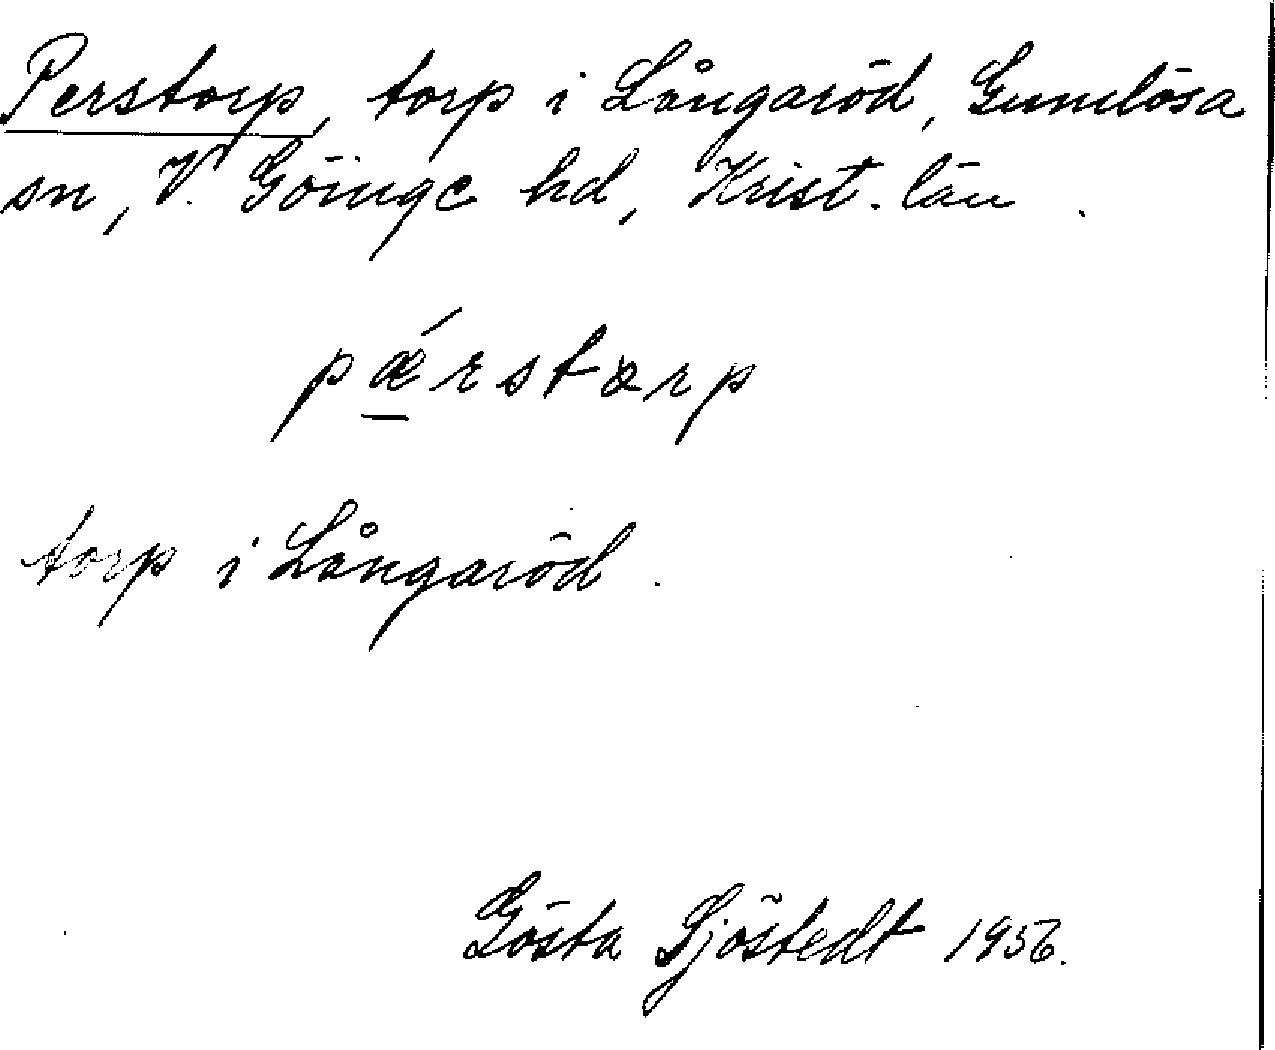 Perstorp, torp i Långaröd, Gumlösa
sn, V. Göinge hd, Krist. län.
pǽrstɔrp
torp i Långaröd.
Gösta Sjöstedt 1956.